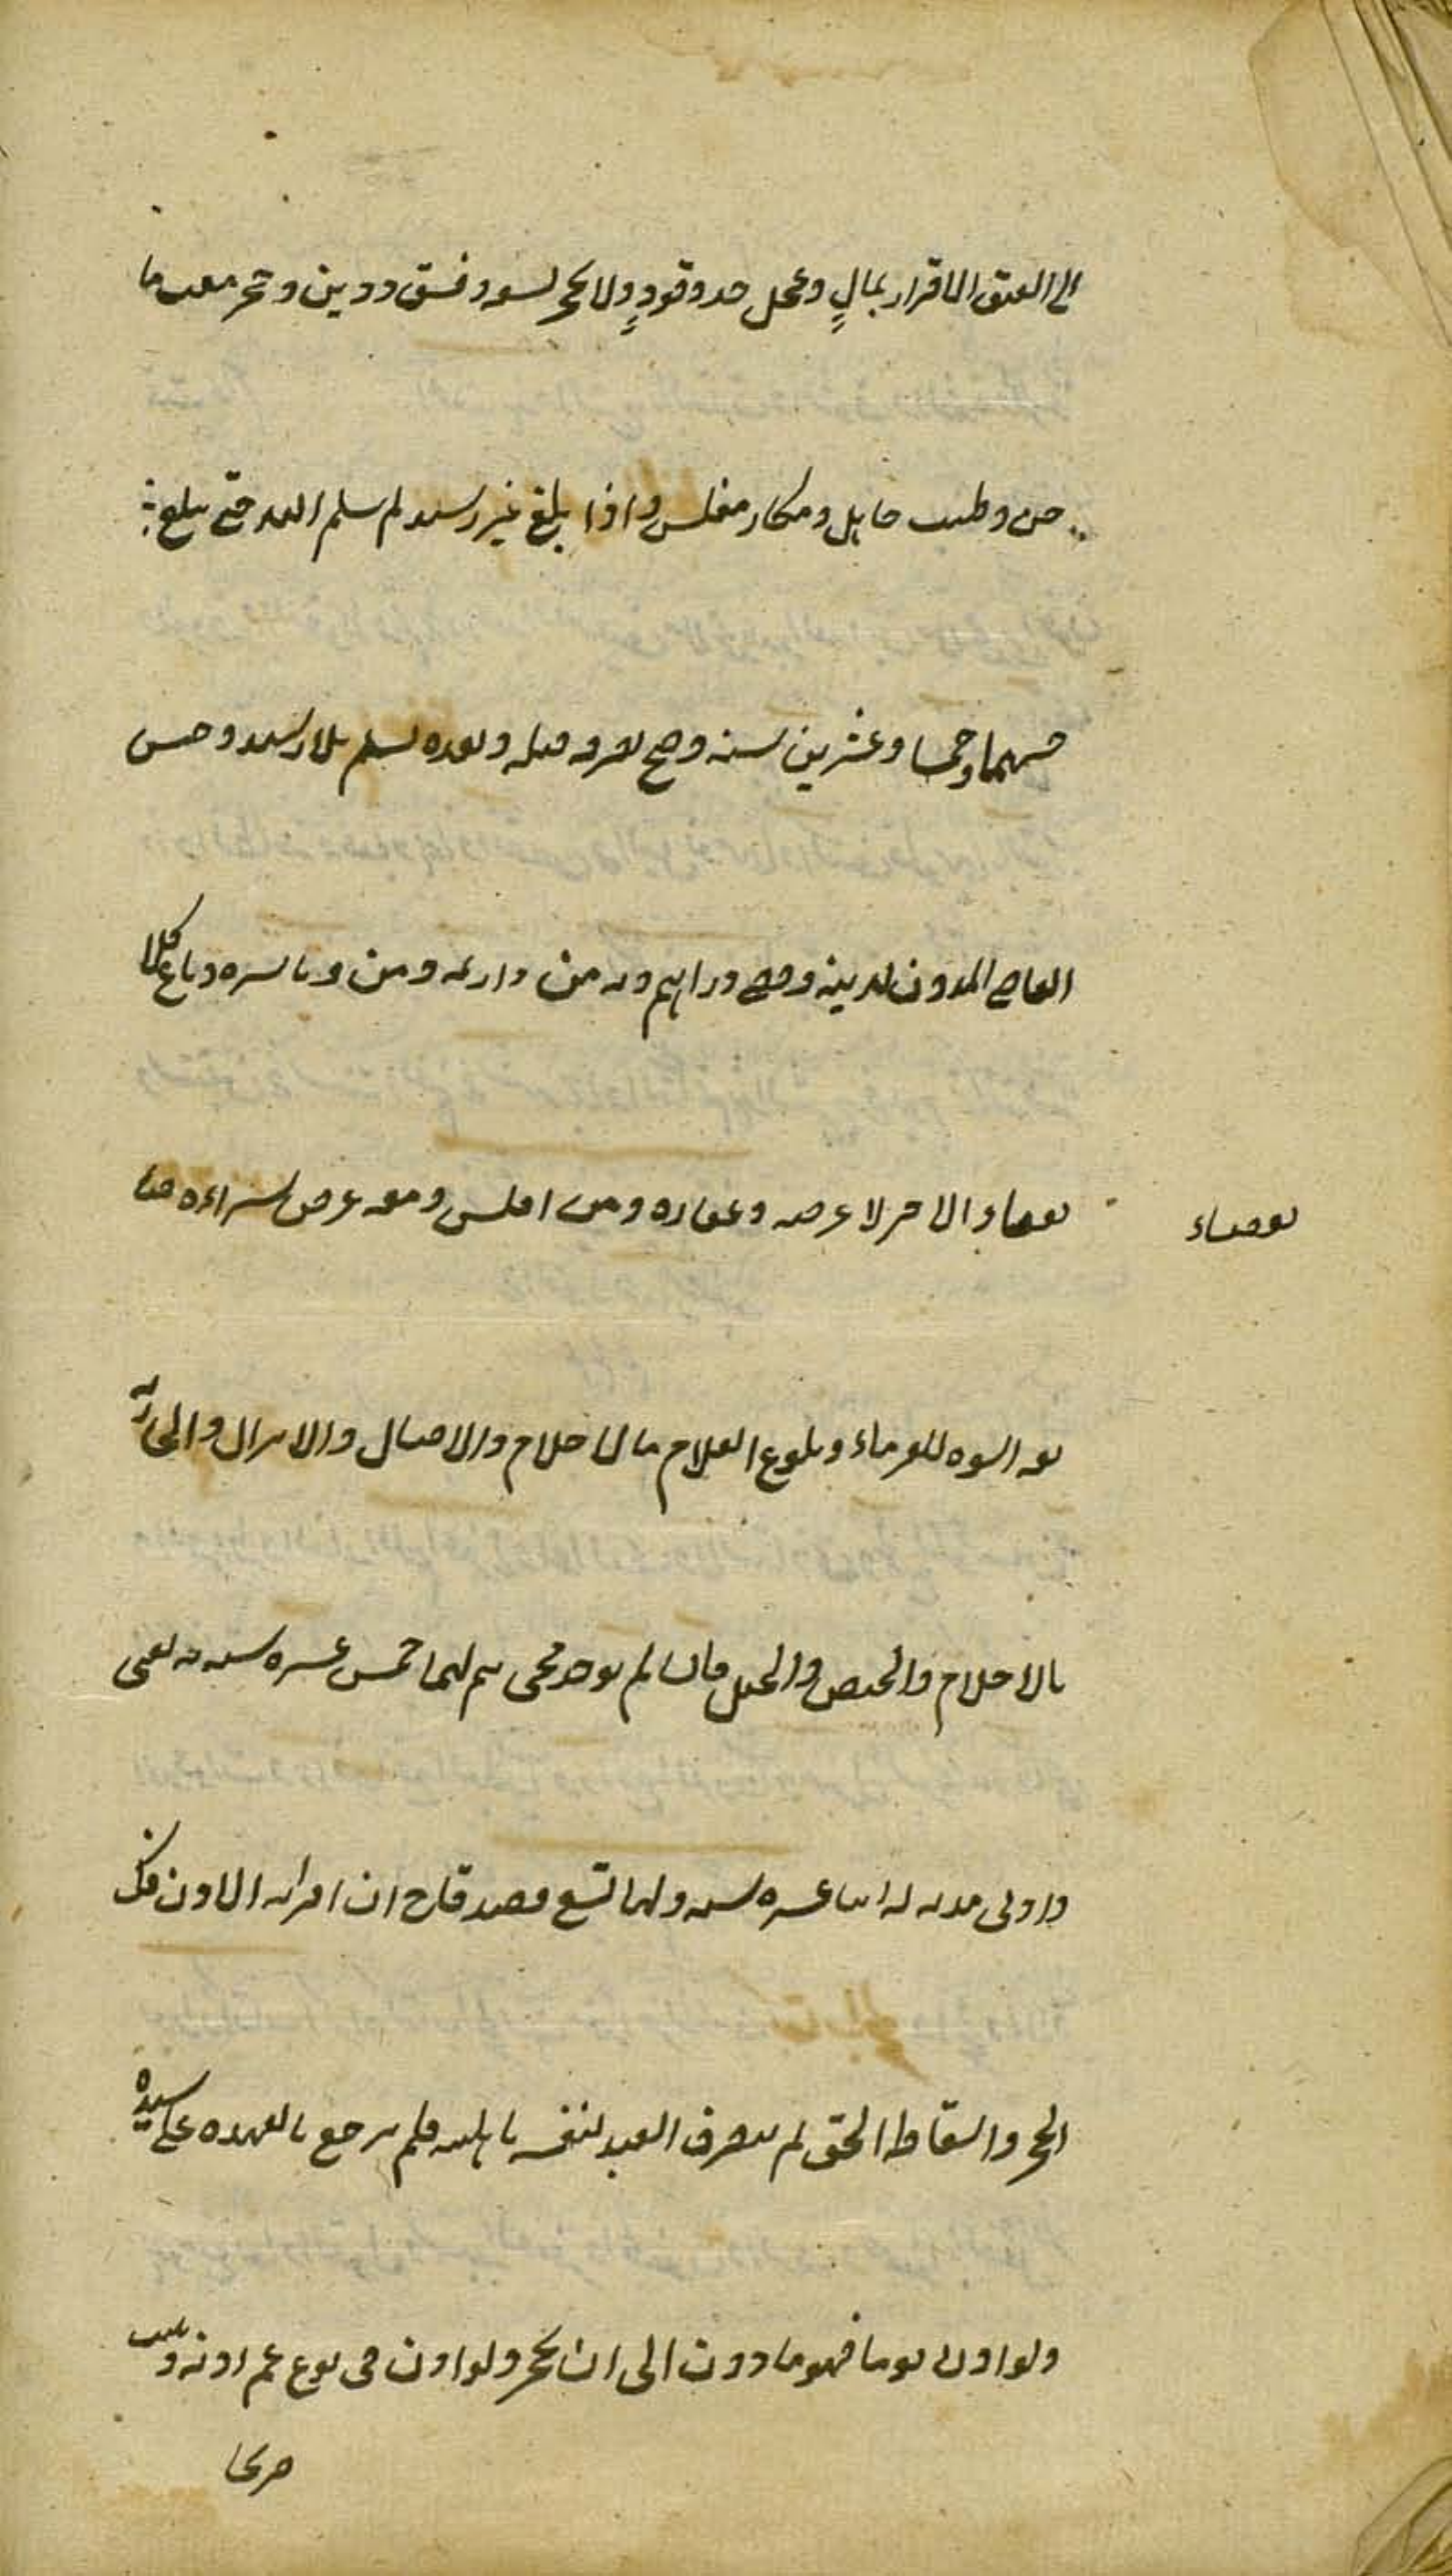 الى العتق الاقرار بمالٍ وعجل حد وقودٍ ولا يحجر لسفه وفسق ودين وحجر مفت ما
جن وطبيب جاهل ومكار مفلس واذا بلغ غير رشيد لم يسلم اليه حتى يبلغ
خمسا وعشرين سنة وصح تصرفه قبله وبعده يسلم بلا رشد وحبس
القاضي المديون لدينه وقضى دراهم دينه من دراهمه ومن دنانيره وباع كلا
لقضاء الآخر لا عرضه وعقاره ومن افلس ومعه عرض شراءه فبا
لقضاء
يعه اسوة للغرماء وبلوغ الغلام بالاحتلام والاحبال والانزال والجارية
بالاحتلام والحيض والحبل فان لم يوجد فحتى يتم لهما خمس عشرة سنة به يفتى
وادنى مدته له اثنا عشرة سنة ولها تسع فصدقا ح ان اقرا به الاذن فك
الحجر واسقاط الحق ثم يتصرف العبد لنفسه باهليته فلم يرجع بالعهدة على سيده
ولو اذن يوما فهو مأذون الى ان يحجر ولو اذن في نوع عم اذنه ويثبت
صريحا